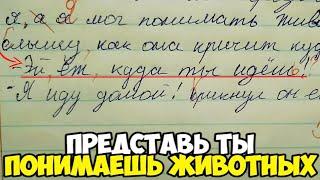 я, а я мог понимать жив
слышу, как она кричит куд
Эй, кот, куда ты идёшь!
"Я иду домой! крикнул он е
ПРЕДСТАВЬ ТЫ
ПОНИМАЕШЬ ЖИВОТНЫХ